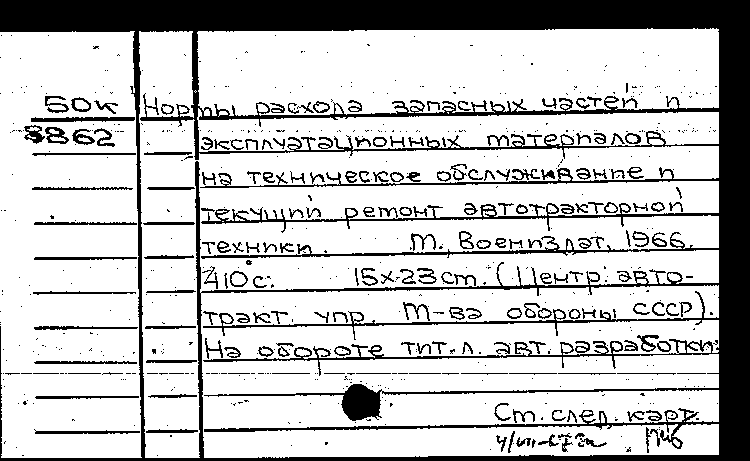 50к Нормы расхода запасных частей и
8862 эксплуатационных материалов
на техническое обслуживание и
текущий ремонт автотракторной
техники. М., Воениздат, 1966.
410с. 15х23см. (Центр. авто-
тракт. упр. М-ва обороны СССР).
На обороте тит.л. авт. разработки:
Ст. след. карт.